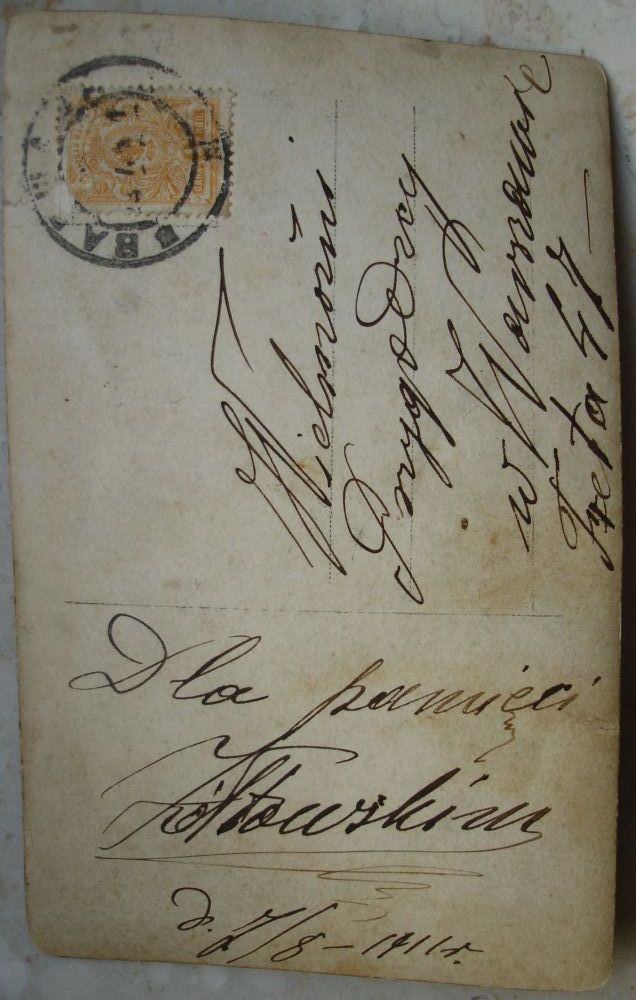 Wielmożni
w Warszawie
Freta 47 –
Dla pamięci
Żółtowskim
d. 7/8 – 1911 r.